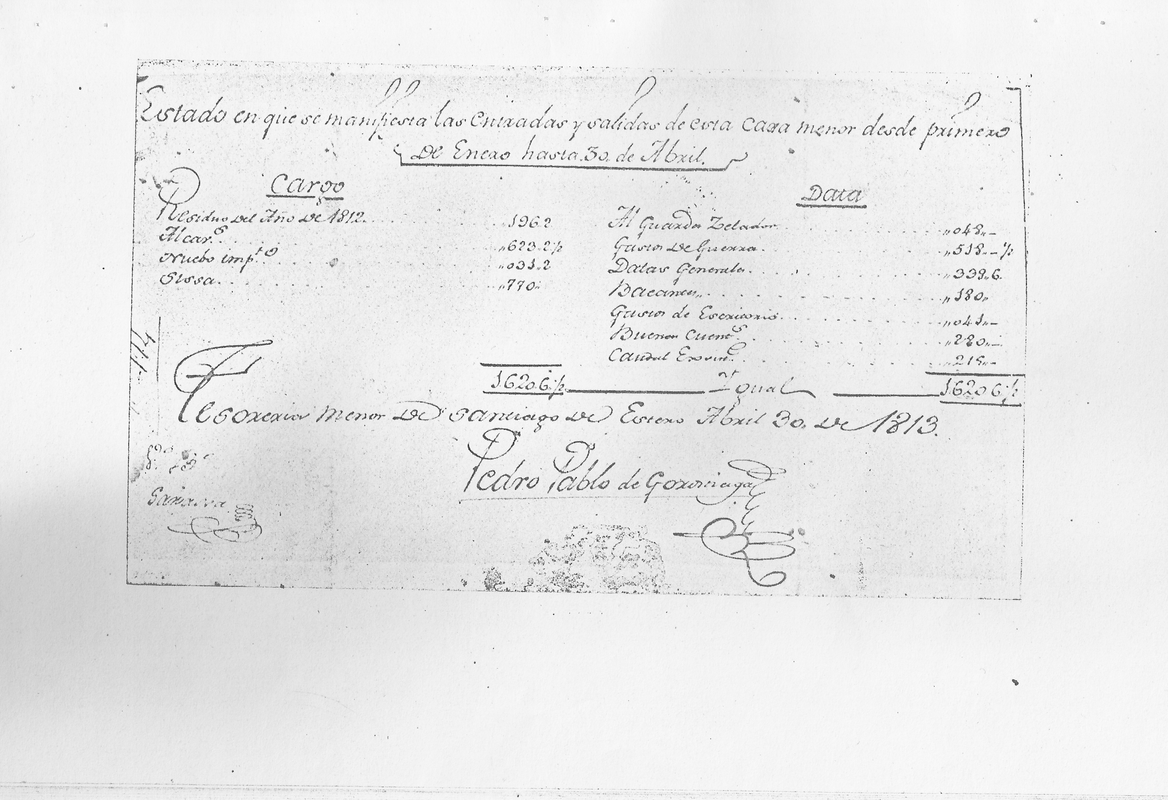 Estado en que se manifiesta las Entradas y salidas de esta Caxa menor desde primero
de Enero hasta 30 de Abril.
Cargo
Residuo del Año de 1812. ,,196.2
Alcav.s ,,623.2½
Nuebo imp.to ,,031.2
Sissa. ,,770,,
1620.6½
Data
Al Guarda Zelador ,,048,,-
Gastos de Guerra. ,,518.-½
Datas Generales. ,,339.6.
Bacantes,, ,,180,,
Gastos de Escritorio. ,,041,,-
Buenas Cuent.s ,,280,,-
Caudal Exsist.e ,,215,,-
Ygual 1620.6½
Tesoreria menor de Santiago de Estero Abril 30, de 1813.
Pedro Pablo de Gorostiaga